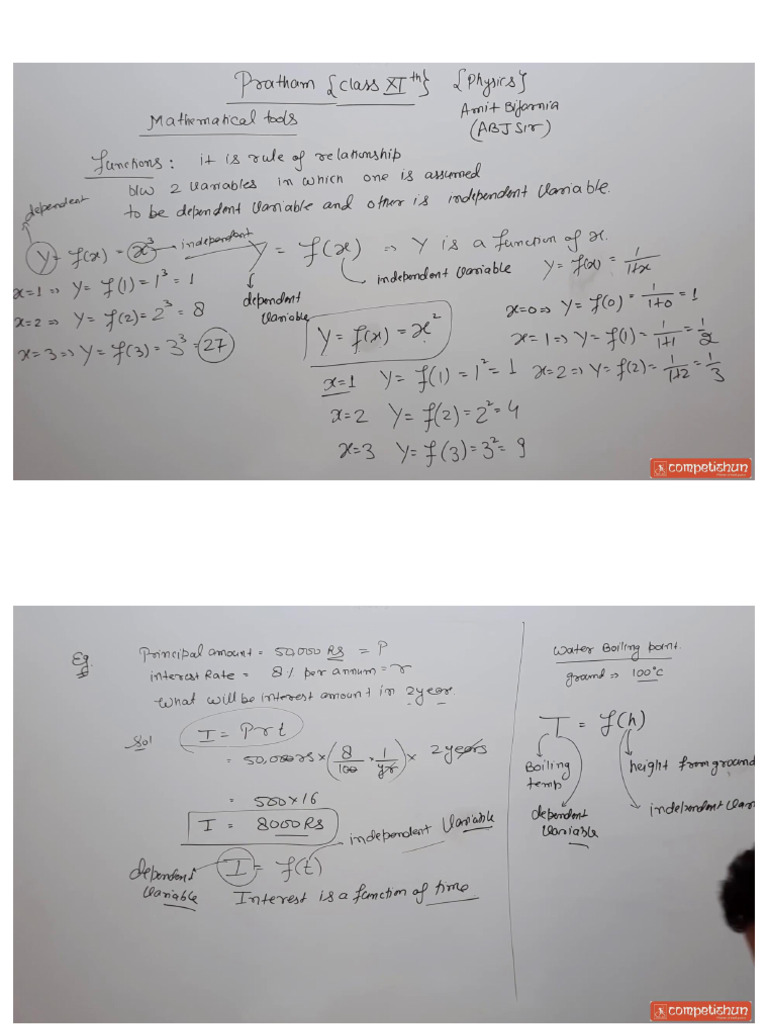 Pratham {class XIth} {Physics}
Amit Bijarnia
(ABJ Sir)
Mathematical tools
functions: it is rule of relationship
b/w 2 variables in which one is assumed
to be dependent variable and other is independent variable.
dependent
Y = f(x) = x³ independent
x=1 ⇒ Y= f(1) = 1³ = 1
x=2 ⇒ Y= f(2) = 2³ = 8
x=3 ⇒ Y= f(3) = 3³ = 27
Y = f(x) ⇒ Y is a function of x.
independent variable
dependent
variable
Y = f(x) = x²
x=1 Y= f(1) = 1² = 1
x=2 Y= f(2) = 2² = 4
x=3 Y= f(3) = 3² = 9
Y = f(x) = 1/1+x
x=0 ⇒ Y= f(0) = 1/1+0 = 1
x=1 ⇒ Y= f(1) = 1/1+1 = 1/2
x=2 ⇒ Y= f(2) = 1/1+2 = 1/3
competishun
Eg.
Principal amount = 50,000 RS = P
interest Rate = 8% per annum = r
What will be interest amount in 2 year.
Sol
I = Prt
= 50,000 rs × (8/100 × 1/yr) × 2 years
= 500 × 16
I = 8000 RS
independent variable
I = f(t)
dependent
variable
Interest is a function of time
Water Boiling point.
ground ⇒ 100°C
T = f(h)
Boiling
temp
height from ground
dependent
variable
independent varia
competishun